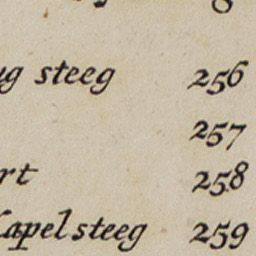 steeg 256
257
258
apel steeg 259